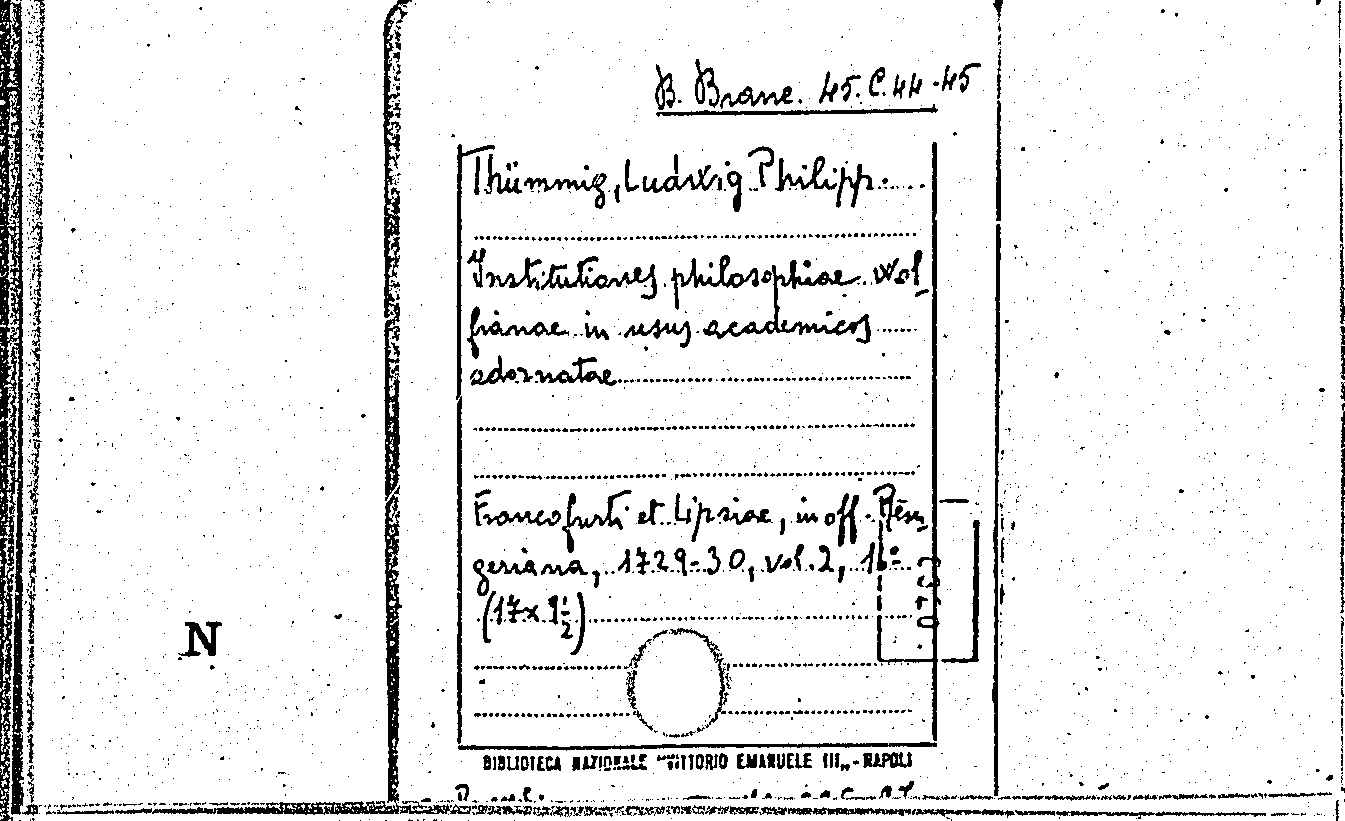 B. Branc. 45. C. 44-45
Thümmig, Ludwig Philipp.
Institutiones philosophiae wol
fianae in usus academicos
adornatae
Francofurti et Lipsiae, in off. Ren
geriana, 1729-30, vol. 2, 16°
(17x9½)
N
BIBLIOTECA NAZIONALE "VITTORIO EMANUELE III„ - NAPOLI